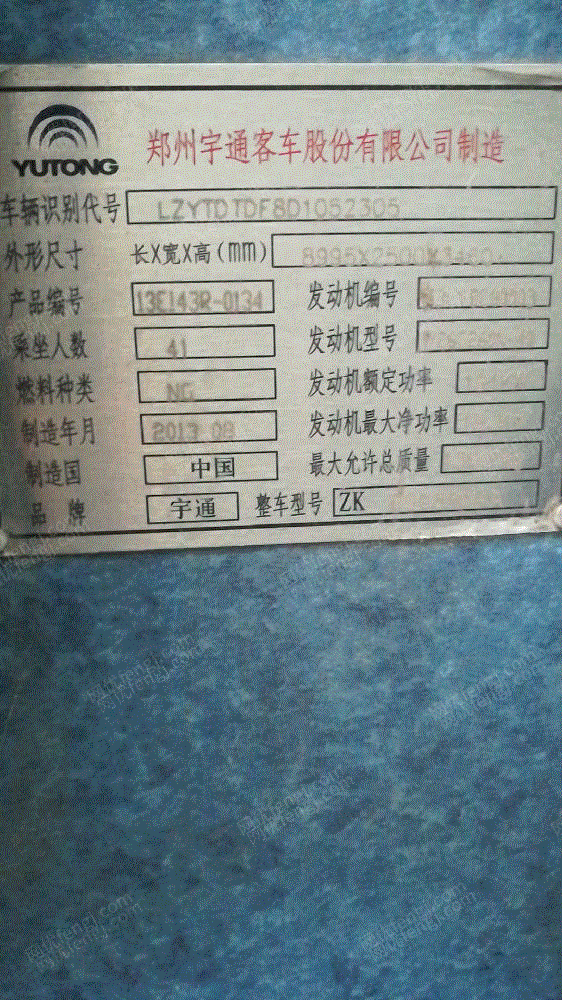 YUTONG
郑州宇通客车股份有限公司制造
车辆识别代号 LZYTDTDF8D1052305
外形尺寸 长X宽X高(mm) 8995X2500X3460
产品编号 13E143R-0134 发动机编号
乘坐人数 41 发动机型号
燃料种类 NG 发动机额定功率
制造年月 2013 08 发动机最大净功率
制造国 中国 最大允许总质量
品 牌 宇通 整车型号 ZK